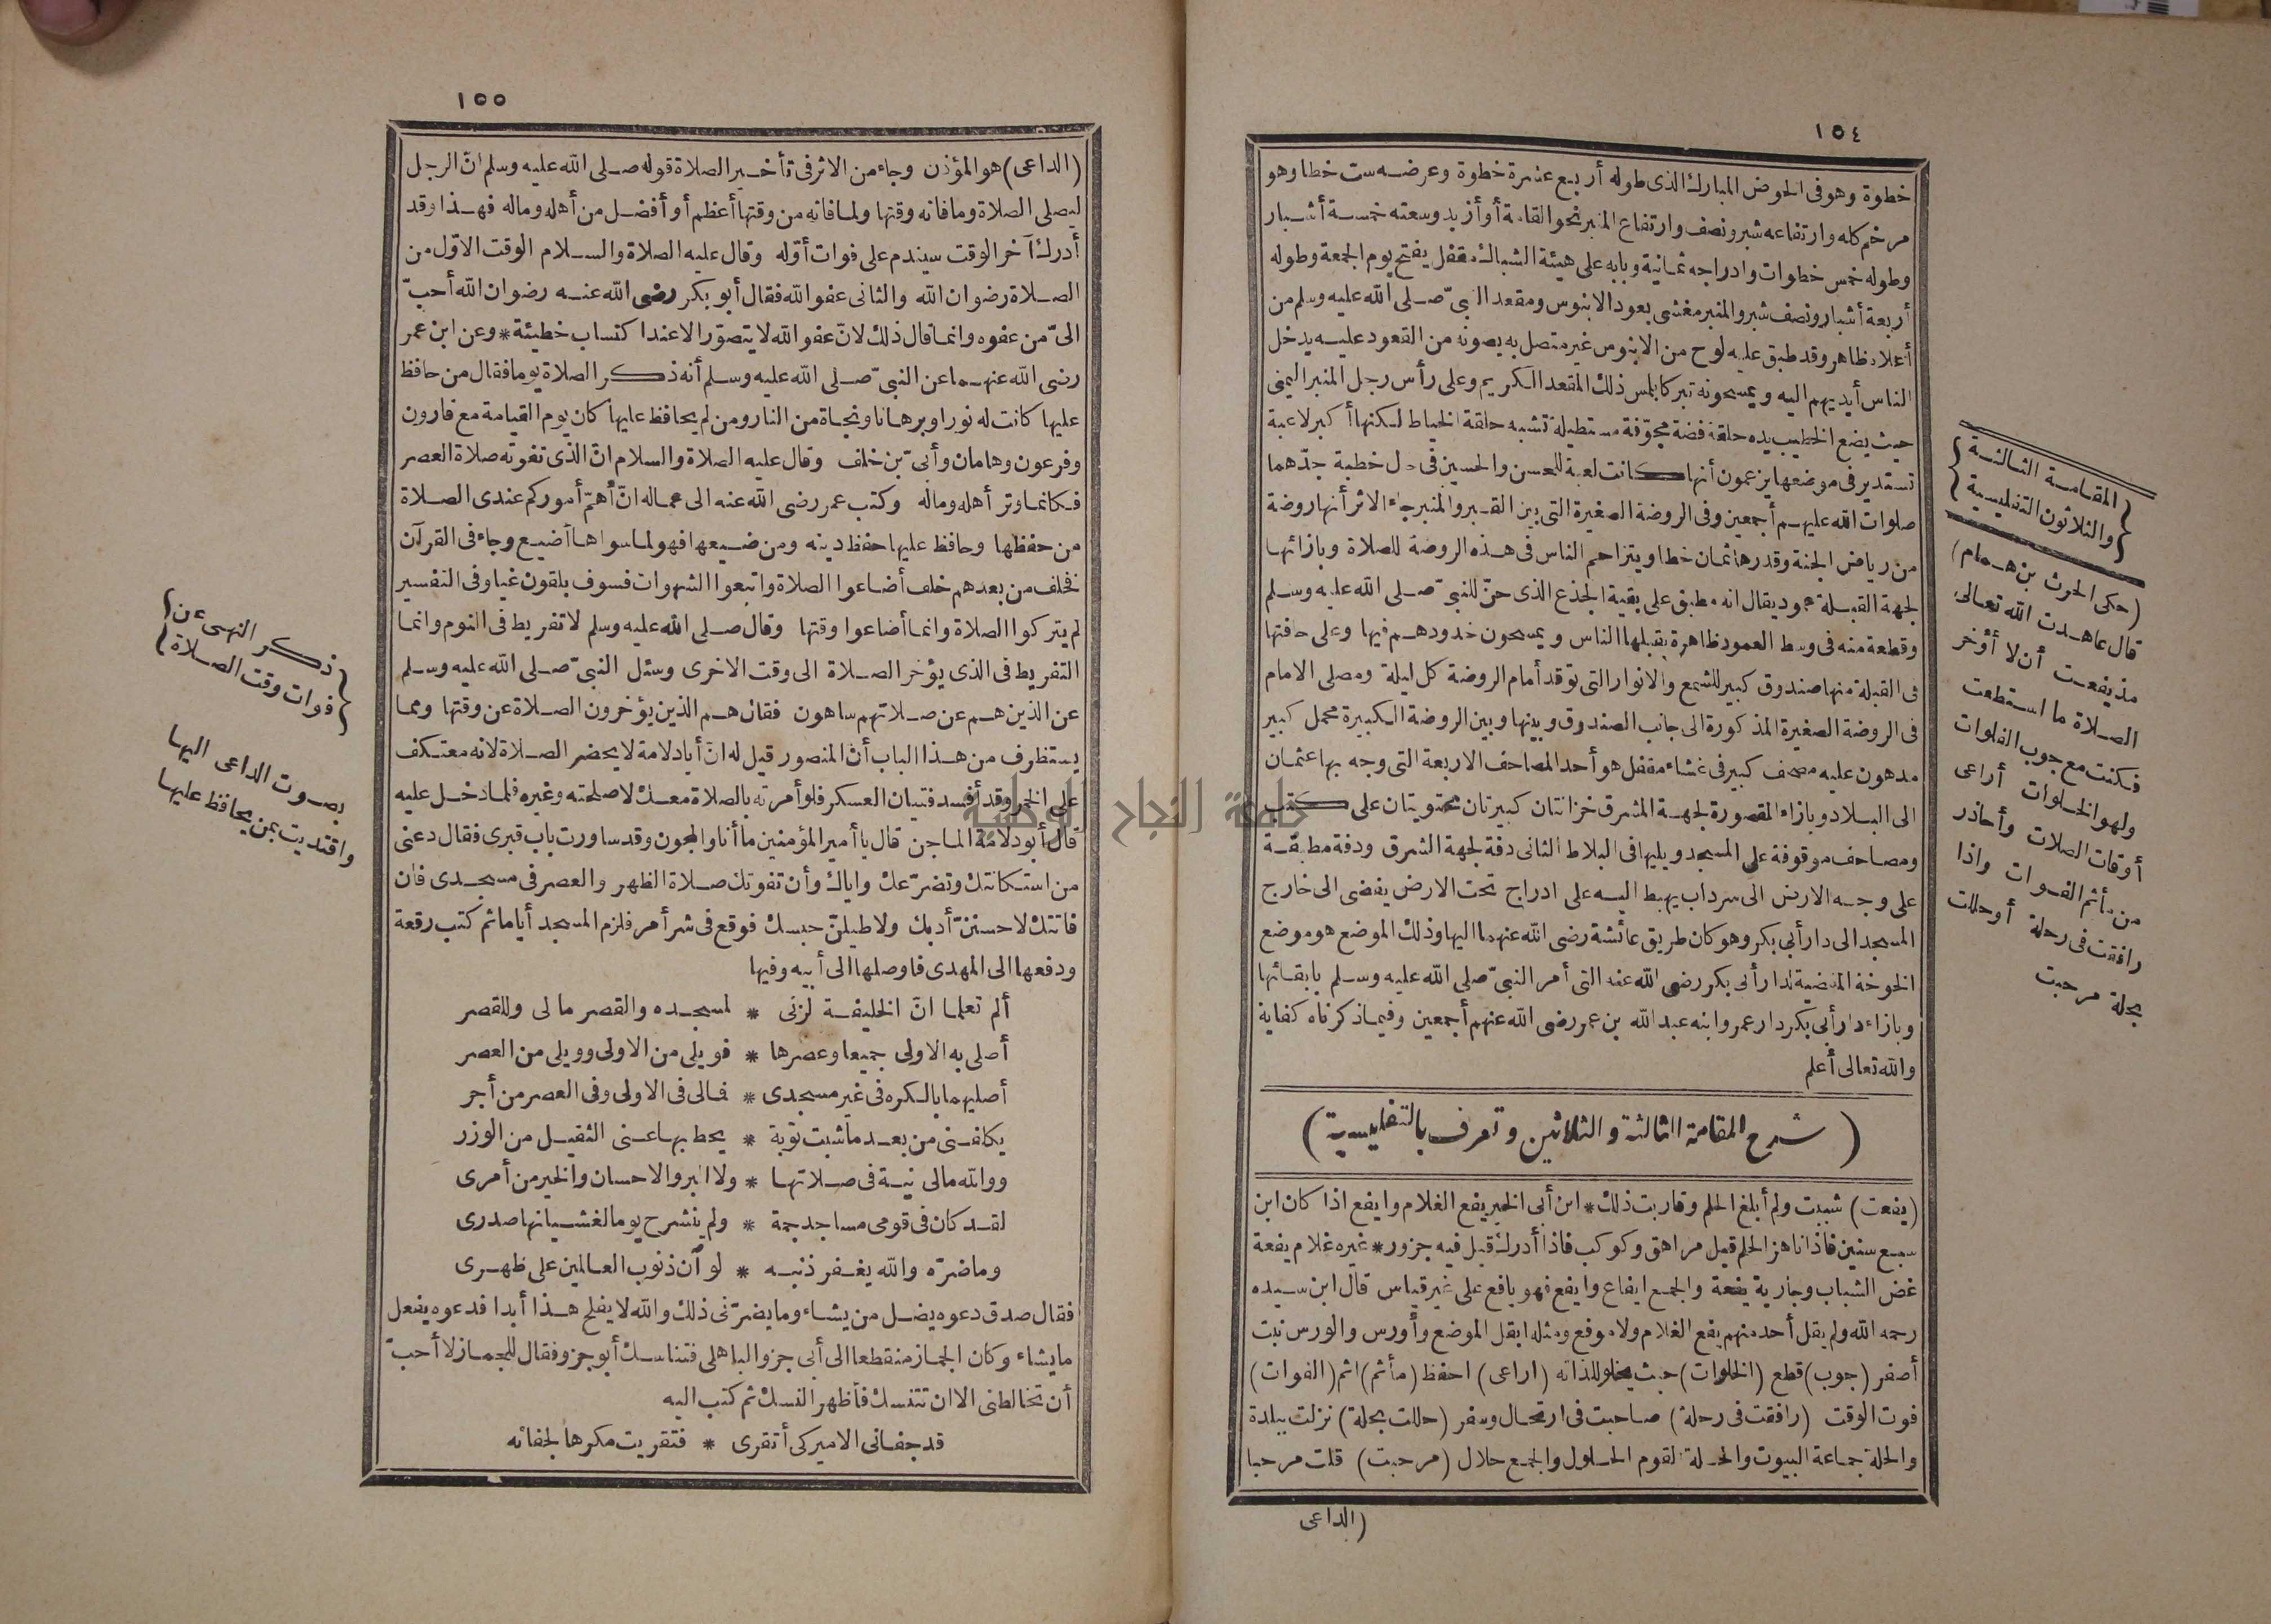 ١٥٤
خطوة وهو فى الحوض المبارك الذى طوله أربع عشرة خطوة وعرضه ست خطا وهو
مرخم كله وارتفاعه شبر ونصف وارتفاع المنبر نحو القامة أو أزيد وسعته خمسة أشبار
وطوله خمس خطوات وادراجه ثمانية وبابه على هيئة الشباك مقفل يفتح يوم الجمعة وطوله
أربعة أشبار ونصف شبر والمنبر مغشى بعود الابنوس ومقعد النبىّ صلى الله عليه وسلم من
أعلاه ظاهر وقد طبق عليه لوح من الابنوس غير متصل به يصونه من القعود عليه يدخل
الناس أيديهم اليه ويمسحونه تبركا بلمس ذلك المقعد الكريم وعلى رأس رجل المنبر اليمنى
حيث يضع الخطيب يده حلقة فضة مجوّفة مستطيلة تشبه حلقة الخياط لكنها أكبر لاعبة
تستدير فى موضعها يزعمون أنها كانت لعبة للحسن والحسين فى حال خطبة جدّهما
صلوات الله عليهم أجمعين وفى الروضة الصغيرة التى بين القبر والمنبر جاء الاثر أنها روضة
من رياض الجنة وقدرها ثمان خطا ويتزاحم الناس فى هذه الروضة للصلاة وبازائها
لجهة القبلة عمود يقال انه مطبق على بقية الجذع الذى حنّ للنبىّ صلى الله عليه وسلم
وقطعة منه فى وسط العمود ظاهرة يقبلها الناس ويمسحون خدودهم فيها وعلى حافتها
فى القبلة منها صندوق كبير للشمع والانوار التى توقد أمام الروضة كل ليلة ومصلى الامام
فى الروضة الصغيرة المذكورة الى جانب الصندوق وبينها وبين الروضة الكبيرة محمل كبير
مدهون عليه مصحف كبير فى غشاء مقفل هو أحد المصاحف الاربعة التى وجه بها عثمان
الى البلاد وبازاء المقصورة لجهة المشرق خزانتان كبيرتان محتويتان على كتب
ومصاحف موقوفة على المسجد ويليها فى البلاط الثانى دفة لجهة الشرق ودفة مطبقة
على وجه الارض الى سرداب يهبط اليه على ادراج تحت الارض يفضى الى خارج
المسجد الى دار أبى بكر وهو كان طريق عائشة رضى الله عنهما اليها وذلك الموضع هو موضع
الخوخة المفضية لدار أبى بكر رضى الله عنه التى أمر النبىّ صلى الله عليه وسلم بابقائها
وبازاء دار أبى بكر دار عمر وابنه عبد الله بن عمر رضى الله عنهم أجمعين وفيما ذكرناه كفاية
والله تعالى أعلم
(شرح المقامة الثالثة والثلاثين وتعرف بالتفليسية)
(يفعت) شببت ولم أبلغ الحلم وقاربت ذلك * ابن أبى الخير يفع الغلام وايفع اذا كان ابن
سبع سنين فاذا ناهز الحلم قيل مراهق وكوكب فاذا أدرك قيل فيه جزور * غيره غلام يفعة
غض الشباب وجارية يفعة والجمع ايفاع وايفع فهو يافع على غير قياس قال ابن سيده
رحمه الله ولم يقل أحد منهم يفع الغلام ولا موفع ومثله ابقل الموضع وأورس والورس نبت
أصفر (جوب) قطع (الخلوات) حيث يخلو للذاته (اراعى) احفظ (مأثم) اثم (الفوات)
فوت الوقت (رافقت فى رحلة) صاحبت فى ارتحال وسفر (حللت بحلة) نزلت ببلدة
والحلة جماعة البيوت والحلة القوم الحلول والجمع حلال (مرحبت) قلت مرحبا
(الداعى
{المقامة الثالثة}
{والثلاثون التفليسية}
(حكى الحرث بن همام)
قال عاهدت الله تعالى
مذ يفعت أن لا أؤخر
الصلاة ما استطعت
فكنت مع جوب الفلوات
ولهو الخلوات أراعى
أوقات الصلات وأحاذر
من مأثم الفوات واذا
رافقت فى رحلة أو حللت
بحلة مرحبت
١٥٥
(الداعى) هو المؤذن وجاء من الاثر فى تأخير الصلاة قوله صلى الله عليه وسلم انّ الرجل
ليصلى الصلاة وما فاته وقتها ولما فاته من وقتها أعظم أو أفضل من أهله وماله فهذا وقد
أدرك آخر الوقت سيندم على فوات أوّله وقال عليه الصلاة والسلام الوقت الاوّل من
الصلاة رضوان الله والثانى عفو الله فقال أبو بكر رضى الله عنه رضوان الله أحبّ
الىّ من عفوه وانما قال ذلك لانّ عفو الله لا يتصوّر الا عند اكتساب خطيئة * وعن ابن عمر
رضى الله عنهما عن النبىّ صلى الله عليه وسلم أنه ذكر الصلاة يوما فقال من حافظ
عليها كانت له نورا وبرهانا ونجاة من النار ومن لم يحافظ عليها كان يوم القيامة مع قارون
وفرعون وهامان وأبىّ بن خلف وقال عليه الصلاة والسلام انّ الذى تفوته صلاة العصر
فكانما وتر أهله وماله وكتب عمر رضى الله عنه الى عماله انّ أهمّ أموركم عندى الصلاة
من حفظها وحافظ عليها حفظ دينه ومن ضيعها فهو لما سواها أضيع وجاء فى القرآن
فخلف من بعدهم خلف أضاعوا الصلاة واتبعوا الشهوات فسوف يلقون غيا وفى التفسير
لم يتركوا الصلاة وانما أضاعوا وقتها وقال صلى الله عليه وسلم لا تفريط فى النوم وانما
التفريط فى الذى يؤخر الصلاة الى وقت الاخرى وسئل النبىّ صلى الله عليه وسلم
عن الذين هم عن صلاتهم ساهون فقال هم الذين يؤخرون الصلاة عن وقتها ومما
يستظرف من هذا الباب أنّ المنصور قيل له انّ أبا دلامة لا يحضر الصلاة لانه معتكف
على الخمر وقد أفسد فتيان العسكر فلو أمرته بالصلاة معك لاصلحته وغيره فلما دخل عليه
قال أبو دلامة الماجن قال يا أمير المؤمنين ما أنا والمجون وقد ساورت باب قبرى فقال دعنى
من استكانتك وتضرّعك واياك وأن تفوتك صلاة الظهر والعصر فى مسجدى فان
فاتتك لاحسننّ أدبك ولاطيلنّ حبسك فوقع فى شر أمر فلزم المسجد أياما ثم كتب رقعة
ودفعها الى المهدى فاوصلها الى أبيه وفيها
ألم تعلما انّ الخليفة لزنى * لمسجده والقصر مالى وللقصر
أصلى به الاولى جميعا وعصرها * فويلى من الاولى وويلى من العصر
أصليهما بالكره فى غير مسجدى * فمالى فى الاولى وفى العصر من أجر
يكلفنى من بعد ما شبت توبة * يحط بها عنى الثقيل من الوزر
ووالله مالى نية فى صلاتها * ولا البر والاحسان والخير من أمرى
لقد كان فى قومى مساجد جمة * ولم ينشرح يوما لغشيانها صدرى
وما ضرّه والله يغفر ذنبه * لو أن ذنوب العالمين على ظهرى
فقال صدق دعوه يضل من يشاء وما يضرّنى ذلك والله لا يفلح هذا أبدا فدعوه يفعل
ما يشاء وكان الجماز منقطعا الى أبى جزو الباهلى فتناسك أبو جزو فقال للجماز لا أحبّ
أن تخالطنى الا ان تتنسك فأظهر النسك ثم كتب اليه
قد جفانى الامير كى أتقرى * فتقريت مكرها لجفائه
{ذكر النهى عن}
{فوات وقت الصلاة}
بصوت الداعى اليها
واقتديت بمن يحافظ عليها
جامعة النجاح الوطنية